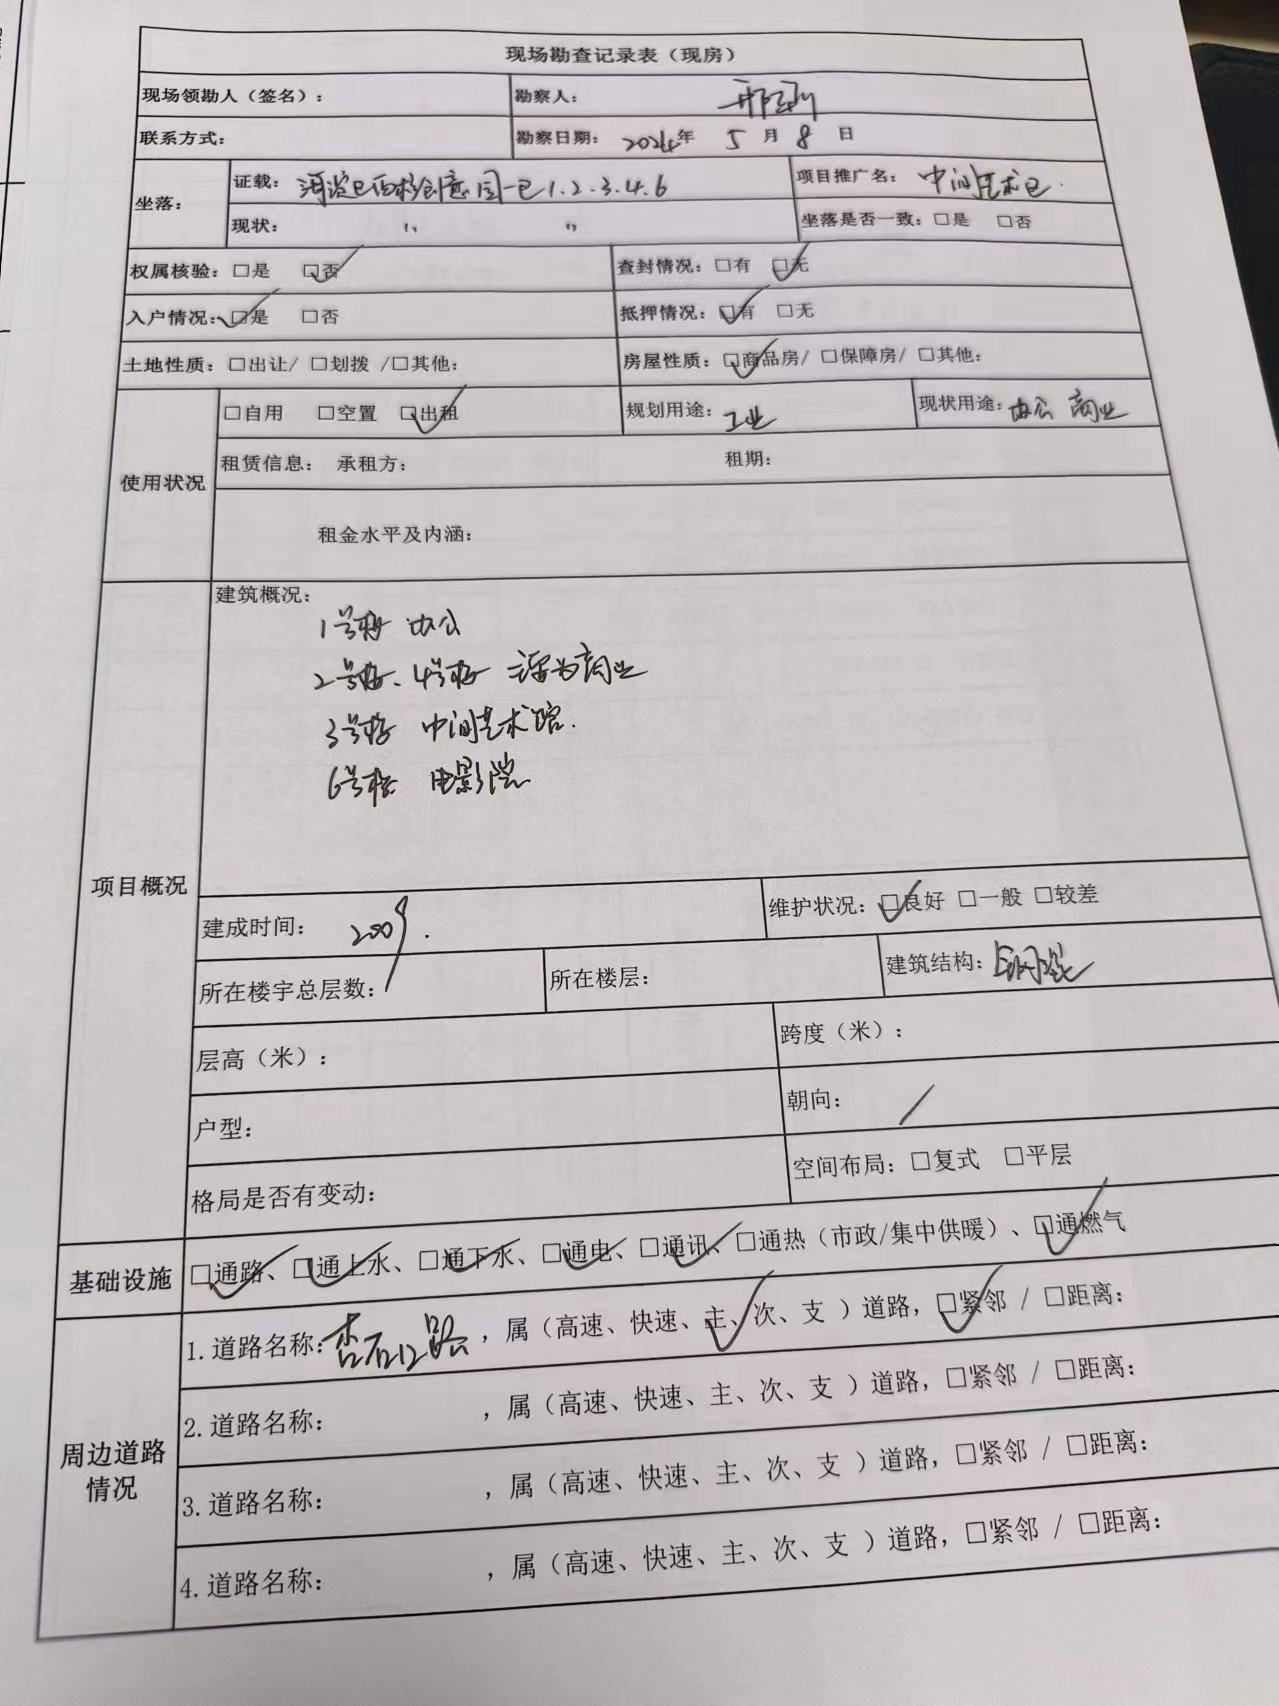 现场勘查记录表（现房）
现场领勘人（签名）： 勘察人：
联系方式： 勘察日期： 2024年 5 月 8 日
坐落： 证载： 海淀区 创意园一区1.2.3.4.6 项目推广名： 中间艺术区
现状： 〃 〃 坐落是否一致：□是 □否
权属核验：□是 ☑否 查封情况：□有 ☑无
入户情况：☑是 □否 抵押情况：☑有 □无
土地性质：□出让/ □划拨 /□其他： 房屋性质：☑商品房/ □保障房/ □其他：
使用状况 □自用 □空置 ☑出租 规划用途：工业 现状用途：办公 商业
租赁信息： 承租方： 租期：
租金水平及内涵：
项目概况 建筑概况：
1号楼 办公
2号楼、4号楼 主要为商业
3号楼 中间艺术馆.
6号楼 电影院
建成时间： 2009. 维护状况：☑良好 □一般 □较差
所在楼宇总层数： 所在楼层： 建筑结构：钢混
层高（米）： 跨度（米）：
户型： 朝向： /
格局是否有变动： 空间布局：□复式 □平层
基础设施 ☑通路、☑通上水、☑通下水、☑通电、☑通讯、□通热（市政/集中供暖）、☑通燃气
周边道路情况 1.道路名称：杏石口路，属（高速、快速、主✓、次、支 ）道路，☑紧邻 / □距离：
2.道路名称： ，属（高速、快速、主、次、支 ）道路，□紧邻 / □距离：
3.道路名称： ，属（高速、快速、主、次、支 ）道路，□紧邻 / □距离：
4.道路名称： ，属（高速、快速、主、次、支 ）道路，□紧邻 / □距离：